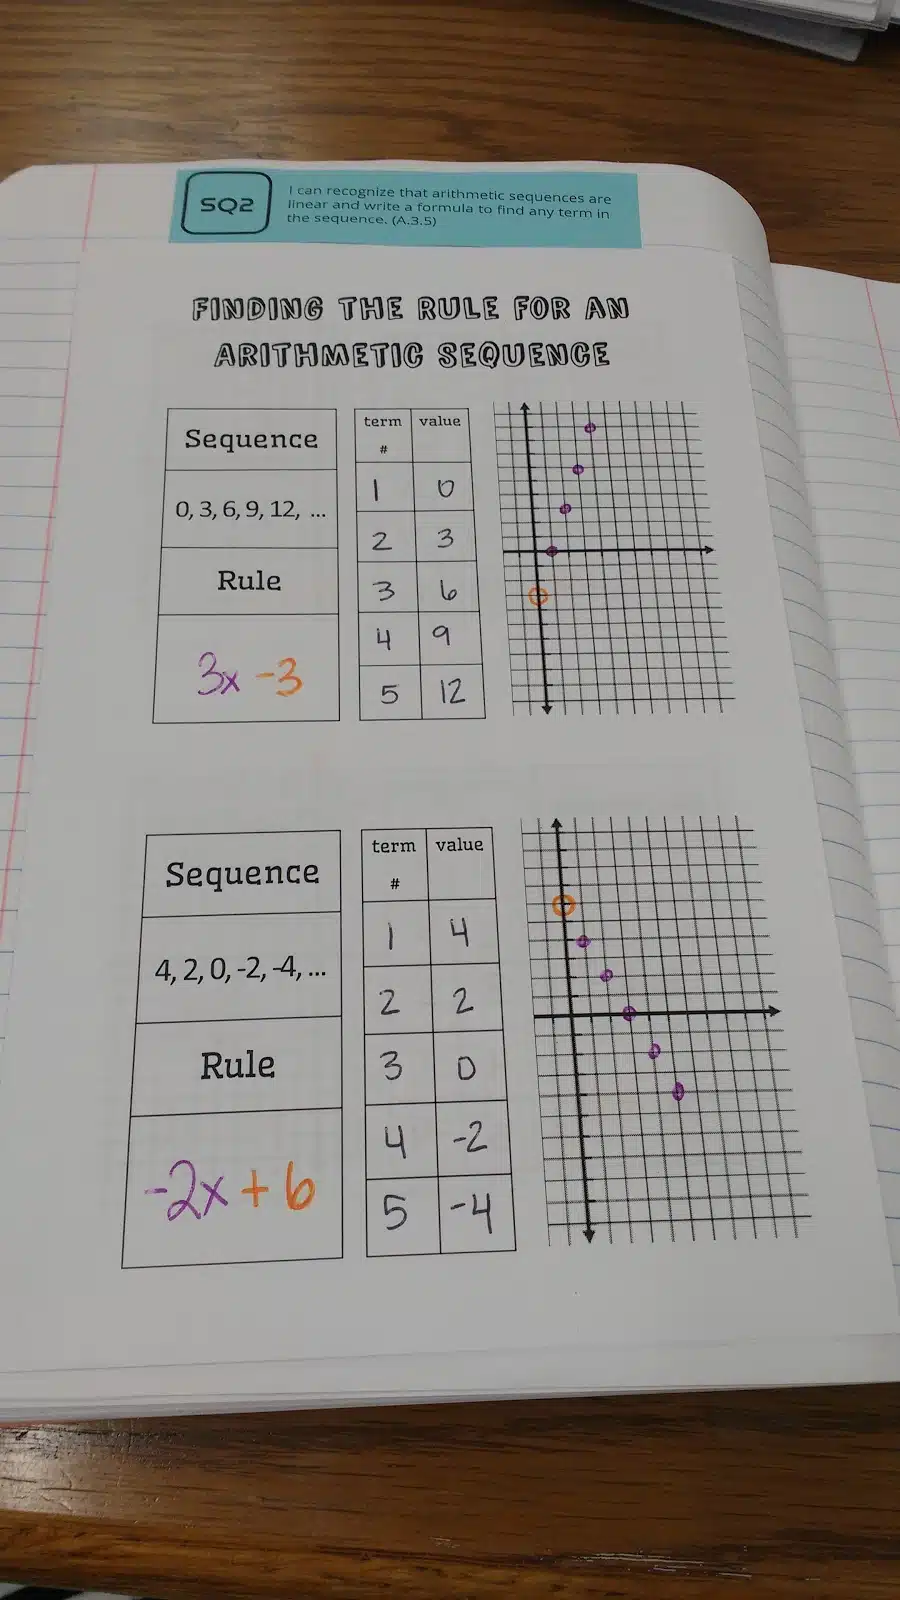 SQ2
I can recognize that arithmetic sequences are
linear and write a formula to find any term in
the sequence. (A.3.5)
FINDING THE RULE FOR AN
ARITHMETIC SEQUENCE
Sequence
0, 3, 6, 9, 12, ...
Rule
3x -3
term value
#
1 0
2 3
3 6
4 9
5 12
Sequence
4, 2, 0, -2, -4, ...
Rule
-2x + 6
term value
#
1 4
2 2
3 0
4 -2
5 -4